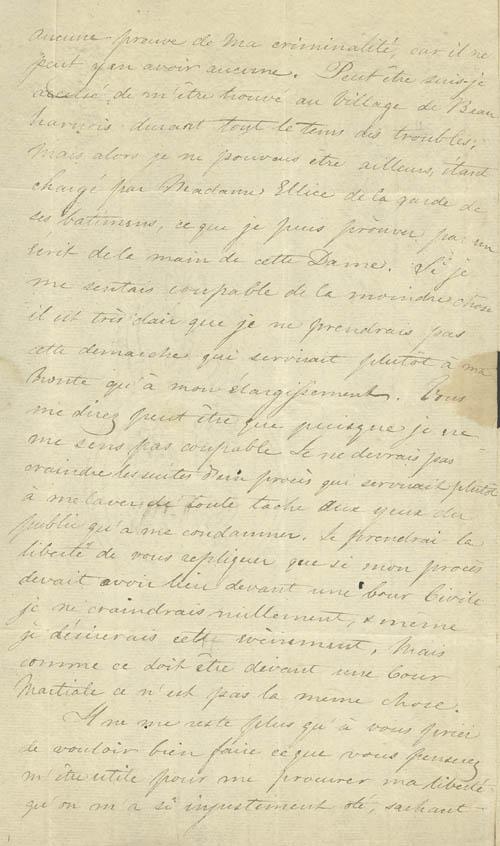 aucune preuve de ma criminalité, car il ne
peut y en avoir aucune. Peut être suis-je
accusé de m'être trouvé au Village de Beau
harnois durant tout le tems des troubles;
mais alors je ne pouvais être ailleurs, étant
chargé par Madame Ellice de la garde de
ses batimens, ce que je puis prouver par un
écrit de la main de cette Dame. Si je
me sentais coupable de la moindre chose
il est très clair que je ne prendrais pas
cette demarche qui servirait plutôt à ma
honte qu'à mon élargissement. Vous
me direz peut être que puisque je ne
me sens pas coupable je ne devrais pas
craindre les suites d'un procès qui servirait plutôt
à me laver de toute tache aux yeux du
public qu'a me condamner. Je prendrai la
liberté de vous repliquer que si mon procès
devait avoir lieu devant une Cour Civile
je ne craindrais nullement, & meme
je désirerais cette evènement, Mais
comme ce doit être devant une Cour
Martiale ce n'est pas la meme chose.
Il ne me reste plus qu'à vous prier
de vouloir bien faire ce que vous penserez
m'être utile pour me procurer ma liberté
qu'on m'a si injustement oté, sachant